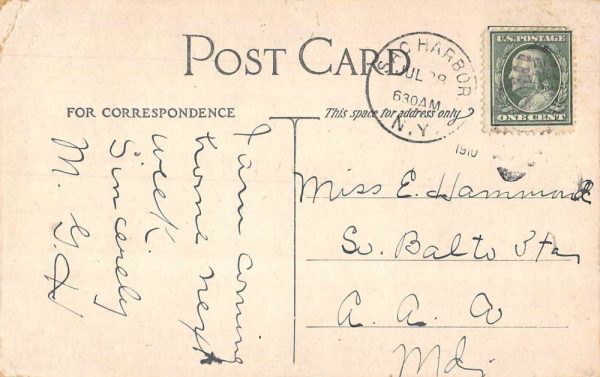 POST CARD
FOR CORRESPONDENCE
This space for address only
S C HARBOR
JUL 28
630AM
N.Y.
1910
U.S. POSTAGE
ONE CENT
I am coming
home next
week.
Sincerely
M. G. H
Miss E. Hammond
So. Balto Sta,
A. A. Co
Md.